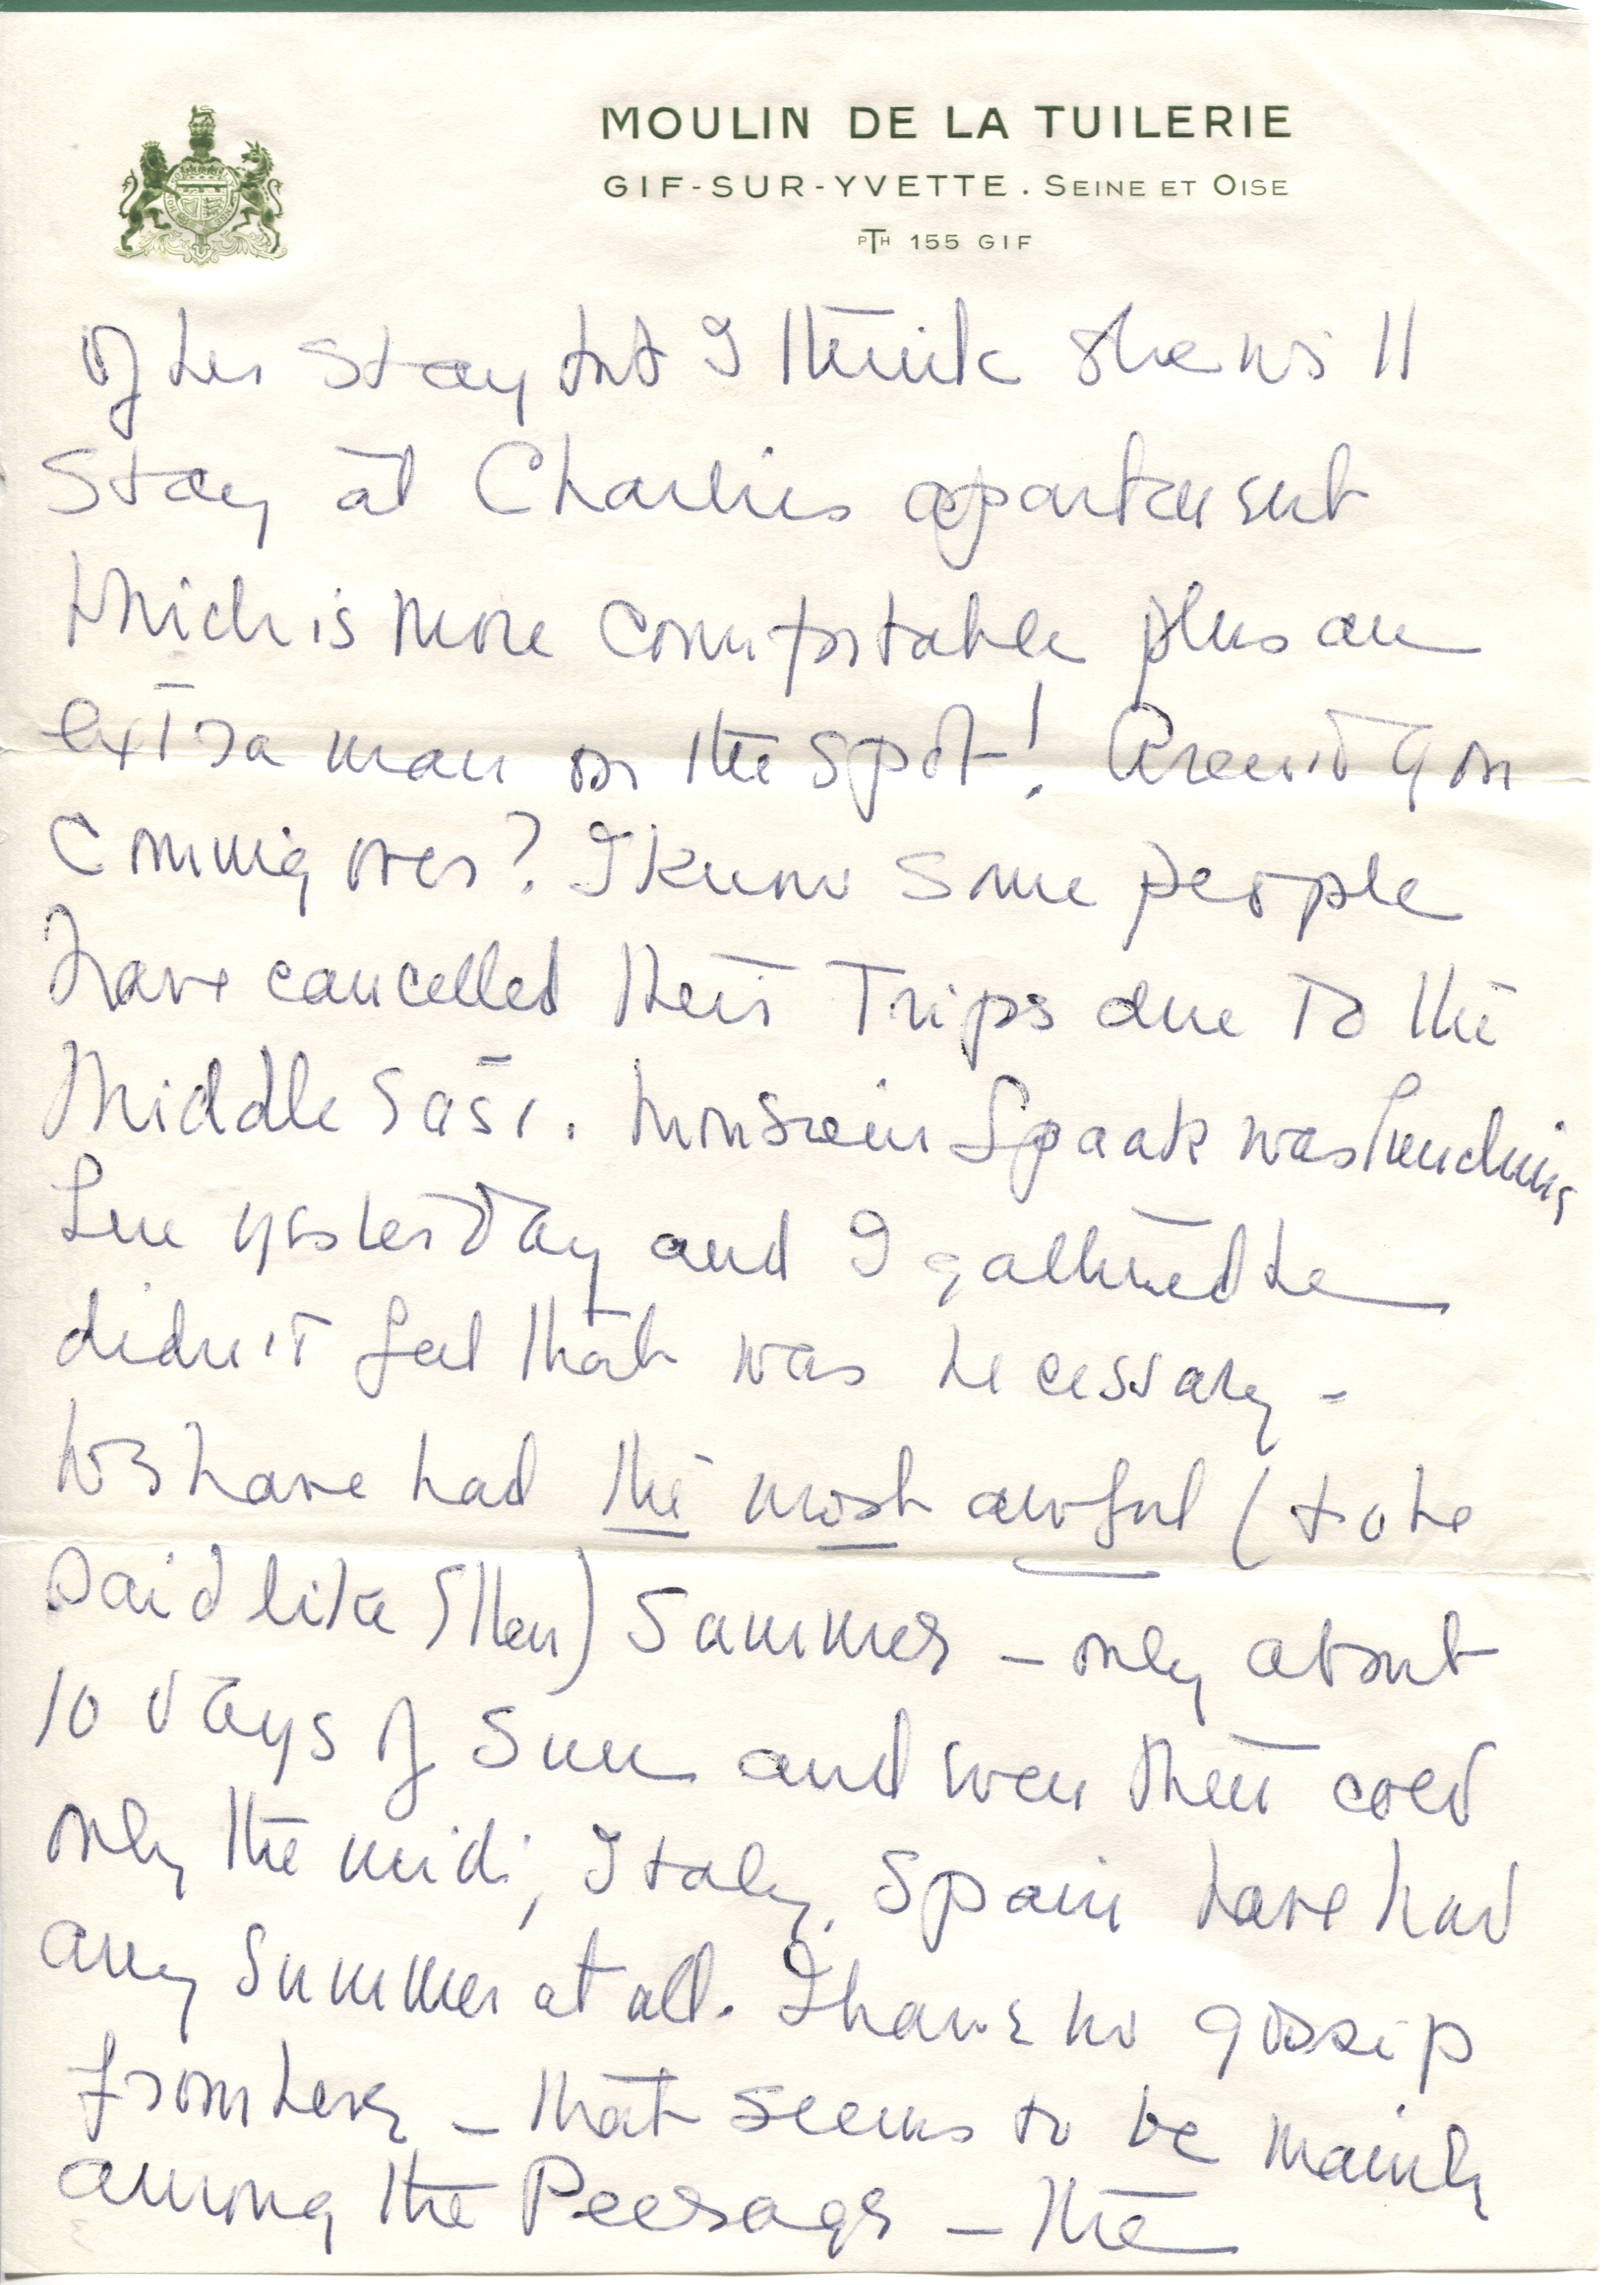 MOULIN DE LA TUILERIE
GIF-SUR-YVETTE . SEINE ET OISE
PTH 155 GIF
of her stay but I think she will
stay at Charlies apartment
which is more comfortable plus an
extra man on the spot! Aren't you
coming over? I know some people
have cancelled their trips due to the
Middle East. Monsieur Spaak was lunching
here yesterday and I gathered he
didn't feel that was necessary -
We have had the most awful (to be
said like Ellen) Summer - only about
10 days of Sun and even then cold
only the midi, Italy, Spain have had
any Summer at all. I have no gossip
from here - that seems to be mainly
among the Peerage - the